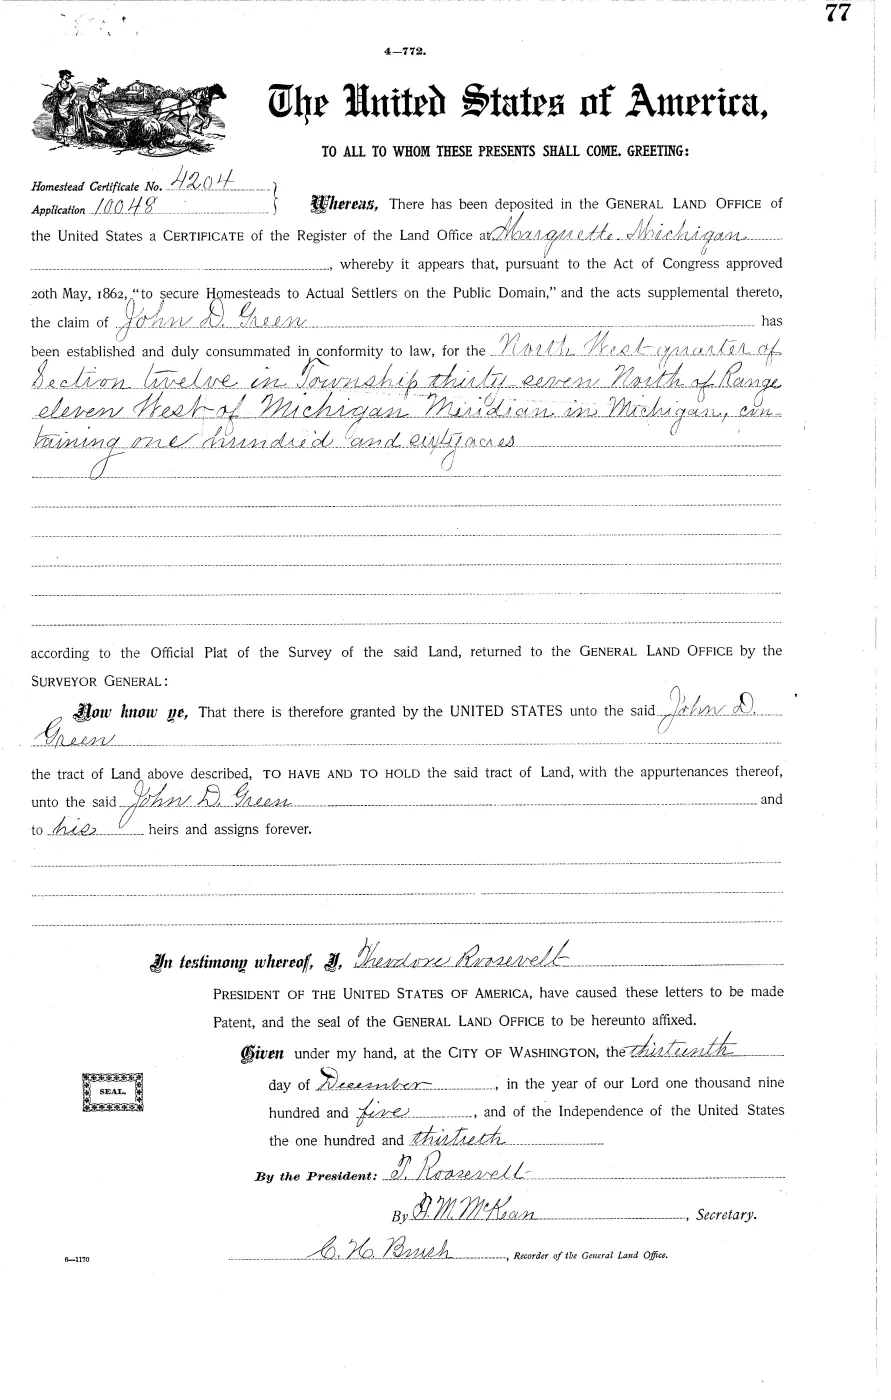 77
4—772.
The United States of America,
TO ALL TO WHOM THESE PRESENTS SHALL COME, GREETING:
Homestead Certificate No. 4204
Application 10048
Whereas, There has been deposited in the GENERAL LAND OFFICE of
the United States a CERTIFICATE of the Register of the Land Office at Marquette Michigan
, whereby it appears that, pursuant to the Act of Congress approved
20th May, 1862, "to secure Homesteads to Actual Settlers on the Public Domain," and the acts supplemental thereto,
the claim of John D. Green has
been established and duly consummated in conformity to law, for the North West quarter of
Section twelve in Township thirty seven North of Range
eleven West of Michigan Meridian in Michigan, con-
taining one hundred and sixty acres
according to the Official Plat of the Survey of the said Land, returned to the GENERAL LAND OFFICE by the
SURVEYOR GENERAL:
Now know ye, That there is therefore granted by the UNITED STATES unto the said John D.
Green
the tract of Land above described, TO HAVE AND TO HOLD the said tract of Land, with the appurtenances thereof,
unto the said John D. Green and
to his heirs and assigns forever.
In testimony whereof, I, Theodore Roosevelt
PRESIDENT OF THE UNITED STATES OF AMERICA, have caused these letters to be made
Patent, and the seal of the GENERAL LAND OFFICE to be hereunto affixed.
Given under my hand, at the CITY OF WASHINGTON, the thirteenth
day of December, in the year of our Lord one thousand nine
SEAL.
hundred and five, and of the Independence of the United States
the one hundred and thirtieth
By the President: T. Roosevelt
By F. M. McKean, Secretary.
C. H. Brush, Recorder of the General Land Office.
6—1170